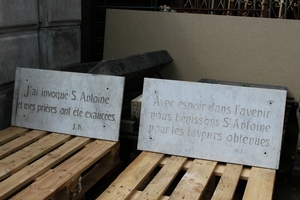 J'ai invoqué S. Antoine
et mes prières ont été exaucées.
J.B.
Avec espoir dans l'avenir
nous bénissons S. Antoine
pour les faveurs obtenues.